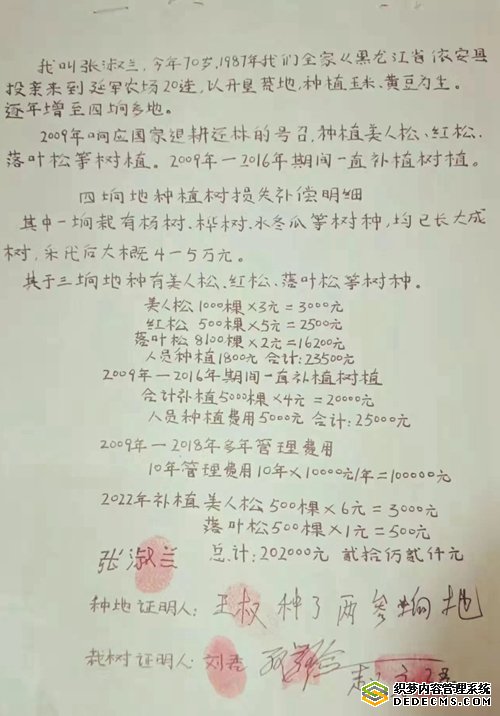 我叫张淑兰,今年70岁,1987年我们全家从黑龙江省依安县
投亲来到延军农场20连,以开垦荒地,种植玉米、黄豆为生。
逐年增至四垧多地。
2009年响应国家退耕还林的号召,种植美人松、红松、
落叶松等树植。2009年—2016年期间一直补植树植。
四垧地种植树损失补偿明细
其中一垧栽有杨树、桦树、水冬瓜等树种,均已长大成
树,采伐后大概4—5万元。
其于三垧地种有美人松、红松、落叶松等树种。
美人松1000棵×3元=3000元
红松 500棵×5元=2500元
落叶松8100棵×2元=16200元
人员种植1800元 合计:23500元
2009年—2016年期间一直补植树植
合计补植5000棵×4元=20000元
人员种植费用5000元 合计:25000元
2009年—2018年多年管理费用
10年管理费用10年×10000元/年=100000元
2022年补植美人松500棵×6元=3000元
落叶松500棵×1元=500元
张淑兰 总计:202000元 贰拾伍贰仟元
种地证明人:王权 种了两参垧地
栽树证明人:刘秀
织梦内容管理系统
DEDECMS.COM